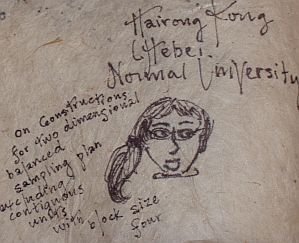 Hairong Kong
(Hebei
Normal University
on Constructions
for two dimensional
balanced
sampling plan
excluding
contiguous
units
with block size
four